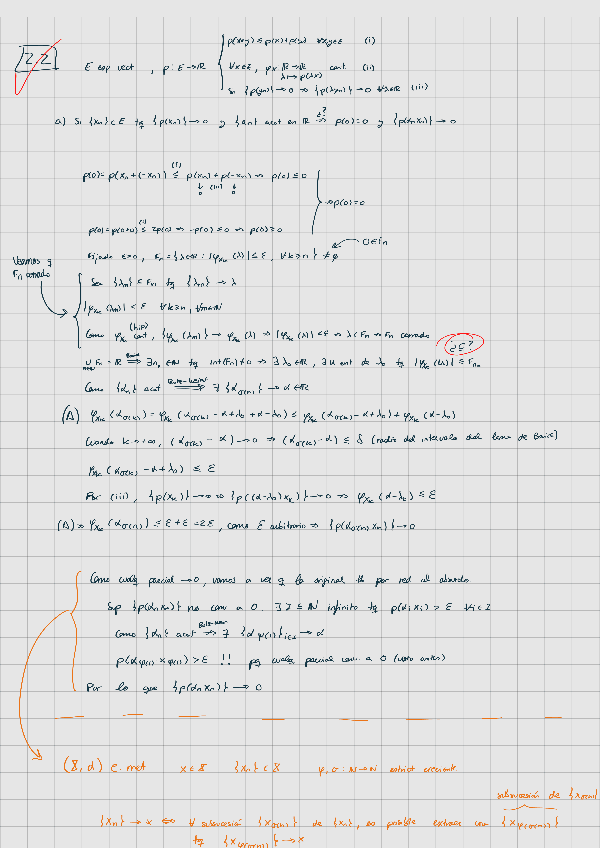 22
E esp vect , p: E→ℝ
p(x+y) ≤ p(x)+p(y) ∀x,y∈E (i)
∀x∈E, φx: ℝ→ℝ cont. (ii)
λ↦p(λx)
Si {p(xn)}→0 ⇒ {p(λxn)}→0 ∀λ∈ℝ (iii)
a) Si {xn}⊂E tq {p(xn)}→0 y {αn} acot en ℝ ⇒ p(0)=0 y {p(αnxn)}→0
p(0)=p(xn+(-xn)) ≤ p(xn)+p(-xn) ⇒ p(0)≤0
(iii)
⇒p(0)=0
p(0)=p(0+0) ≤ 2p(0) ⇒ -p(0)≤0 ⇒ p(0)≥0
0∈Fn
Fijado ε>0, Fn={λ∈ℝ: |φxk(λ)|≤ε, ∀k≥n} ≠ ∅
Veamos q
Fn cerrado
Sea {λm}⊂Fn tq {λm}→λ
|φxk(λm)|<ε ∀k≥n, ∀m∈ℕ
Como φxk cont, {φxk(λm)}→φxk(λ) ⇒ |φxk(λ)|≤ε ⇒ λ∈Fn ⇒ Fn cerrado
(hip)
¿⊆?
∪Fn=ℝ ⇒ ∃n0∈ℕ tq int(Fn)≠∅ ⇒ ∃λ0∈ℝ, ∃U ent de λ0 tq |φxk(U)|⊆Fn0
Como {αn} acot ⇒ ∃{ασ(n)}→α∈ℝ
(Δ) φxk(ασ(k)) = φxk(ασ(k)-α+λ0+α-λ0) ≤ φxk(ασ(k)-α+λ0)+φxk(α-λ0)
Cuando k→∞, (ασ(k)-α)→0 ⇒ (ασ(k)-α)≤δ (radio del intervalo del lema de Baire)
φxk(ασ(k)-α+λ0) ≤ ε
Por (iii), {p(xk)}→0 ⇒ {p((α-λ0)xk)}→0 ⇒ φxk(α-λ0)≤ε
(Δ) ⇒ φxk(ασ(n)) ≤ ε+ε=2ε, como ε arbitrario ⇒ {p(ασ(n)xn)}→0
Como cualq parcial →0, vamos a ver q la original tb por red al absurdo
Sup {p(αnxn)} no conv a 0. ∃I⊆ℕ infinito tq p(αixi)>ε ∀i∈I
Como {αn} acot ⇒ ∃{αφ(i)}i∈I→α
p(αφ(i)xφ(i))>ε !! pq cualq parcial conv a 0 (visto antes)
Por lo que {p(αnxn)}→0
(X,d) e. met x∈X {xn}⊂X φ,σ:ℕ→ℕ estrict crecientes
subsucesión de {xσ(n)}
{xn}→x ⇔ ∀ subsucesión {xσ(n)} de {xn}, es posible extraer una {xφ(σ(n))}
tq {xφ(σ(n))}→x